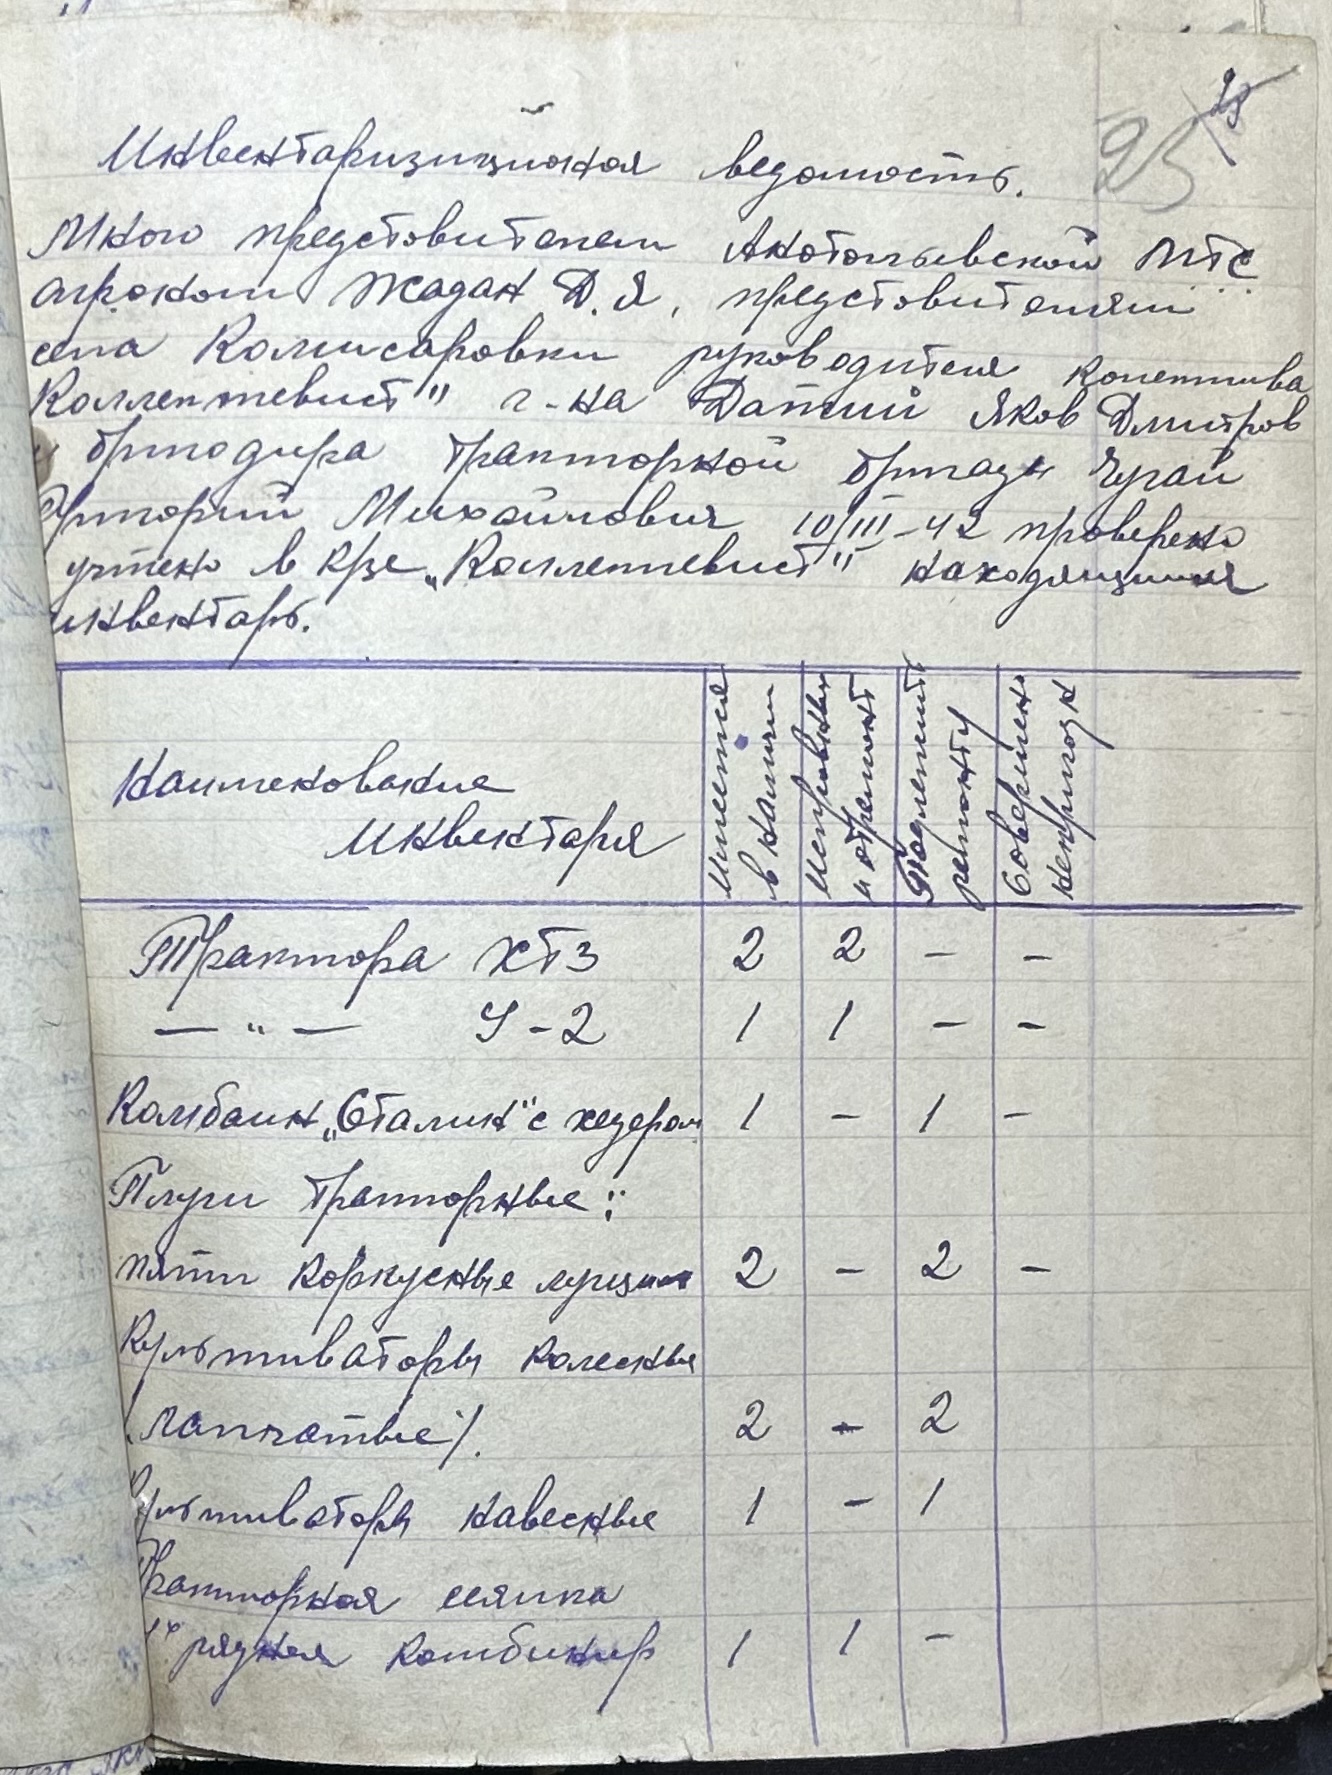 25
Инвентаризицийоная ведомость.
Мною представителем Анатольевской МТС
агроном Жадан Д. Я, представителями
села Комисаровки руководителя колектива
Коллективист" г-на Датий Яков Дмитров
и бригадира тракторной бригады Чугай
Григорий Михайлович 10/III-42 проверено
учтено в к/зе „Коллективист" находящийся
инвентарь.
Наименование инвентаря
Имеется в наличии
Исправных и отремонт
Подлежит ремонту
Совершен непригодн
Трактора ХТЗ 2 2 – –
— " — У-2 1 1 – –
Комбаин „Сталин" с хедером 1 – 1 –
Плуги тракторные:
пяти корпусные лущильн 2 – 2 –
Культиваторы колесные
(лапчатые). 2 – 2
Культиваторы навесные 1 – 1
Тракторная сеялка
рядная комбинир 1 1 –